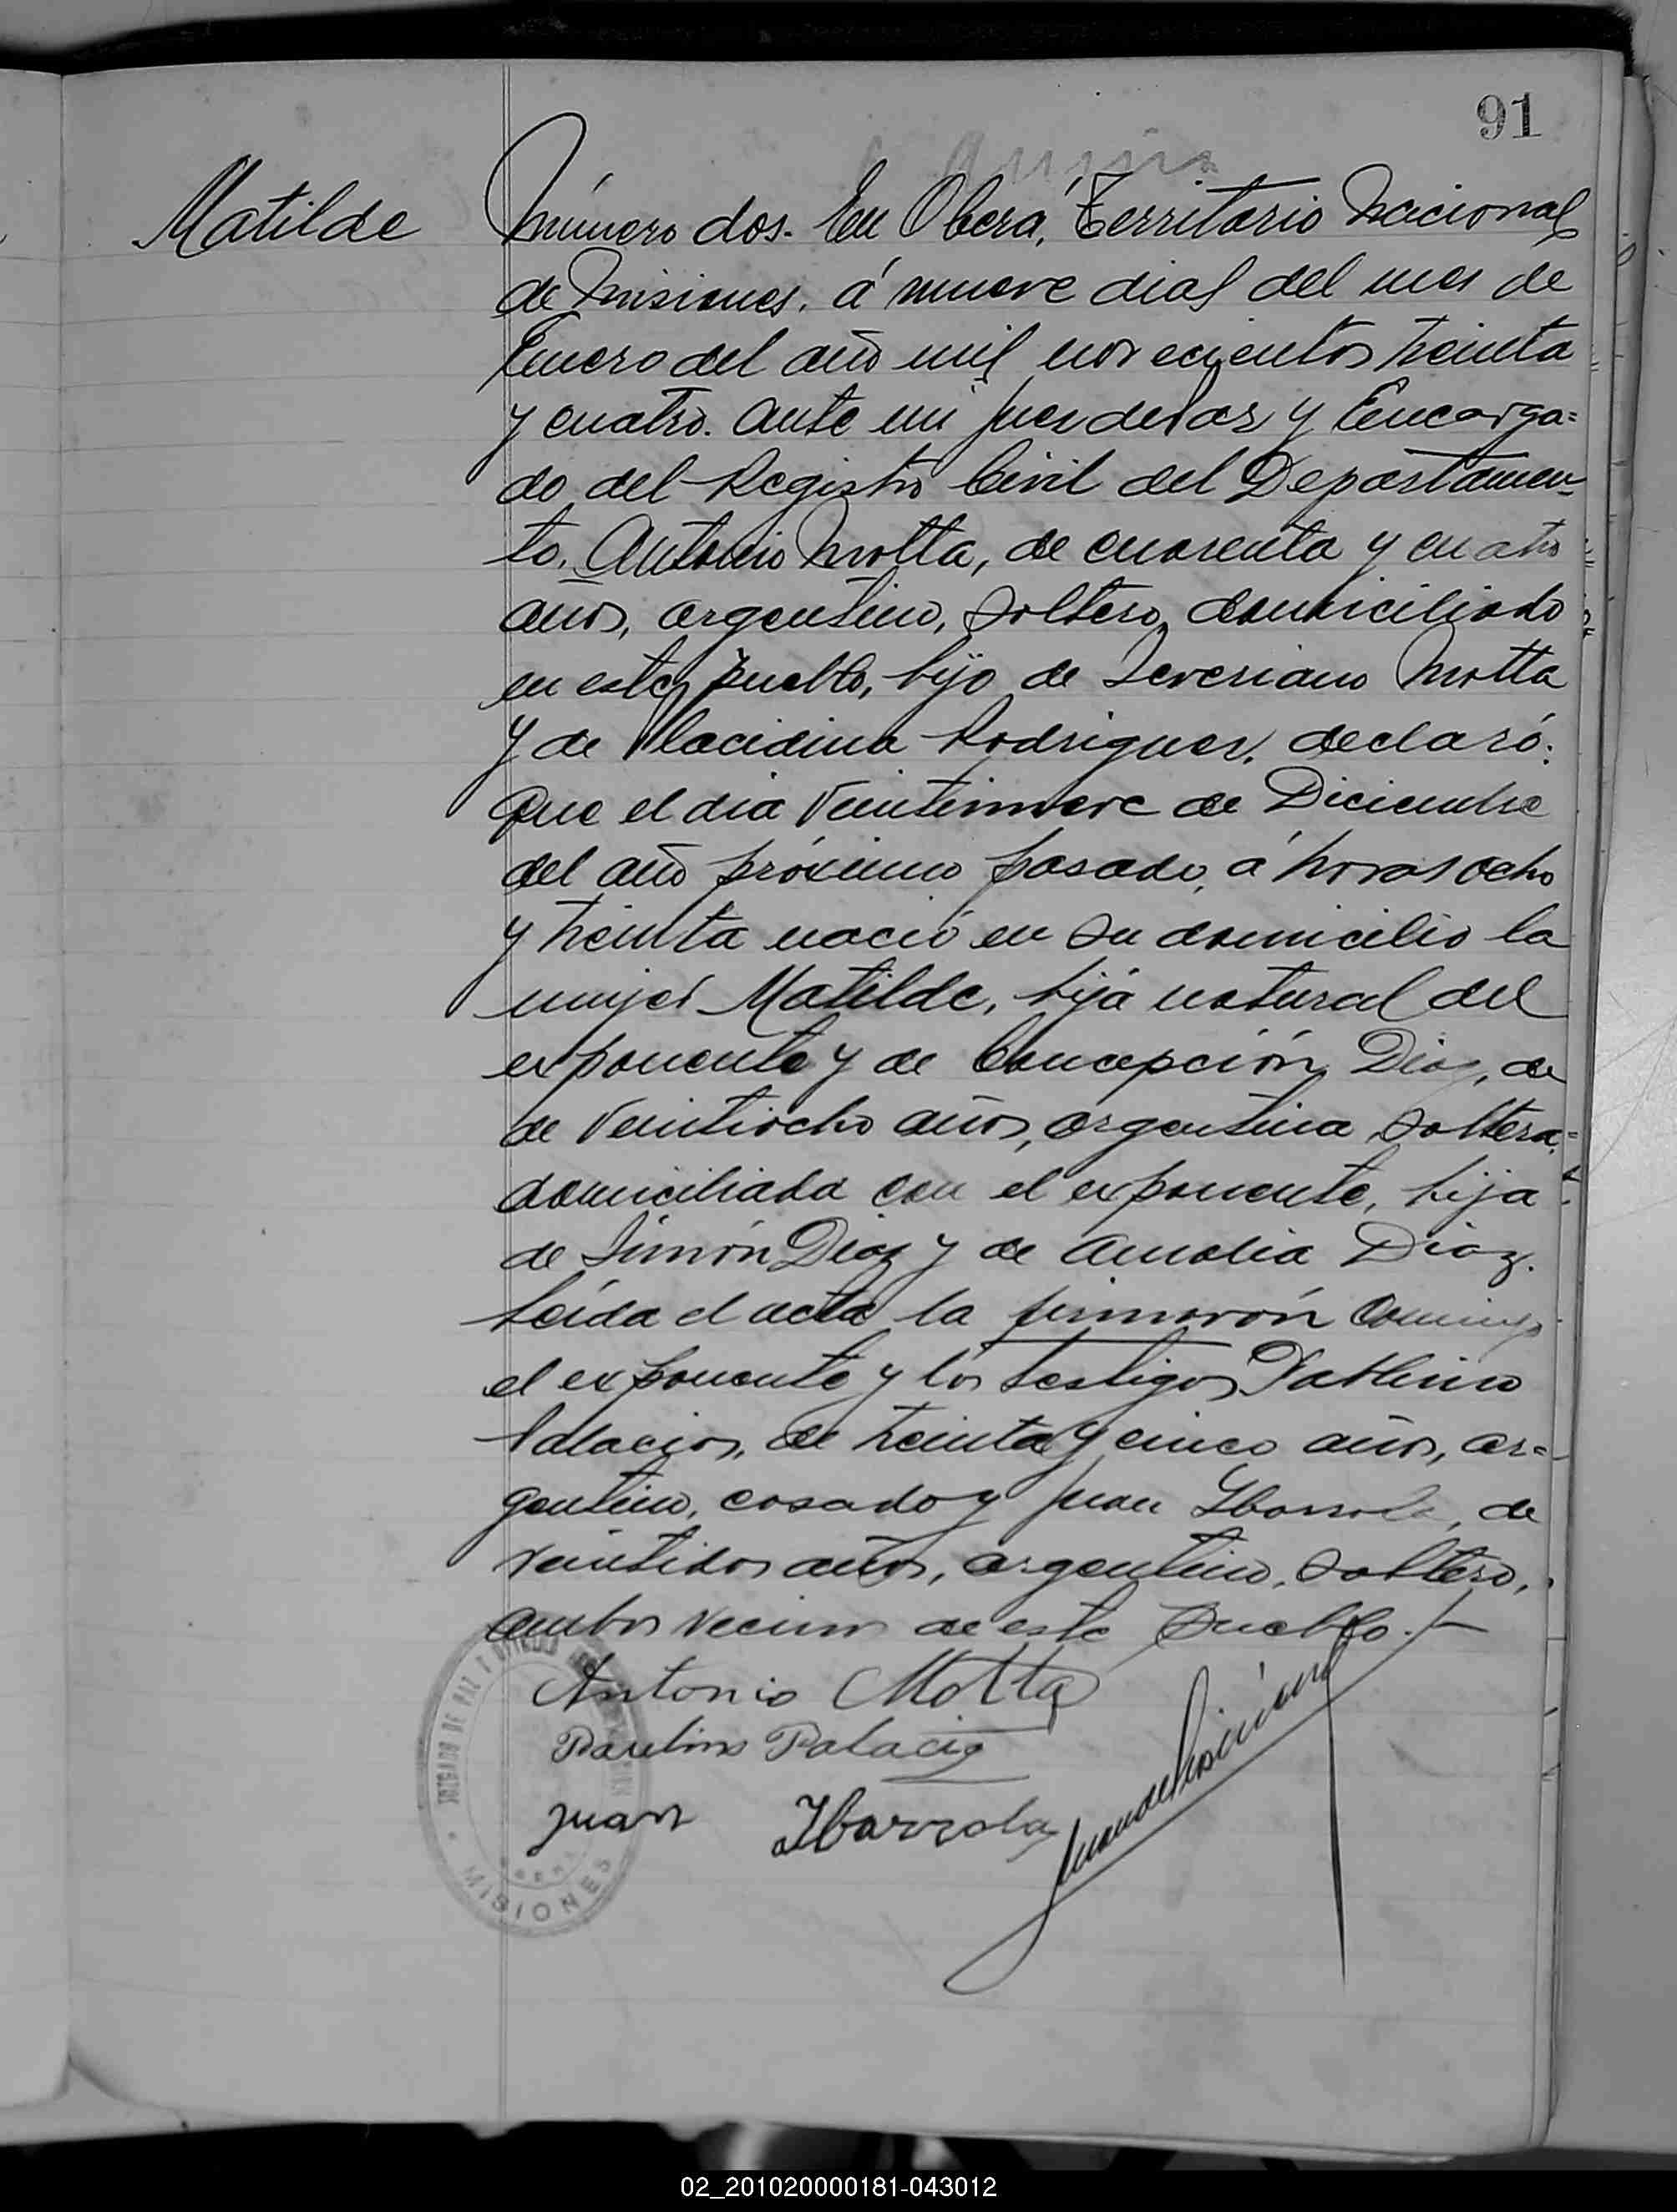 91
Matilde
Número dos. En Oberá, Territorio Nacional
de Misiones, á nueve dias del mes de
Enero del año mil novecientos treinta
y cuatro. Ante mi Juez de Paz y Encarga=
do del Registro Civil del Departamen-
to, Antonio Motta, de cuarenta y cuatro
años, argentino, soltero, domiciliado
en este pueblo, hijo de Severiano Motta
y de Placidina Rodriguez, declaró:
Que el dia veintinueve de Diciembre
del año próximo pasado, á horas ocho
y treinta nació en su domicilio la
mujer Matilde, hija natural del
exponente y de Concepción Diaz, de
de veintiocho años, argentina, soltera,
domiciliada con el exponente, hija
de Simón Diaz y de Amalia Diaz.
Leída el acta la firmarón conmigo
el exponente y los testigos
Palacios, de treinta y cinco años, ar=
gentino, casado y Juan Ibarrola, de
veintidos años, argentino, soltero,
ambos vecinos de este pueblo.
Antonio Motta
Paulino Palacio
Juan Ibarrola
JUZGADO DE PAZ
MISIONES
02_201020000181-043012